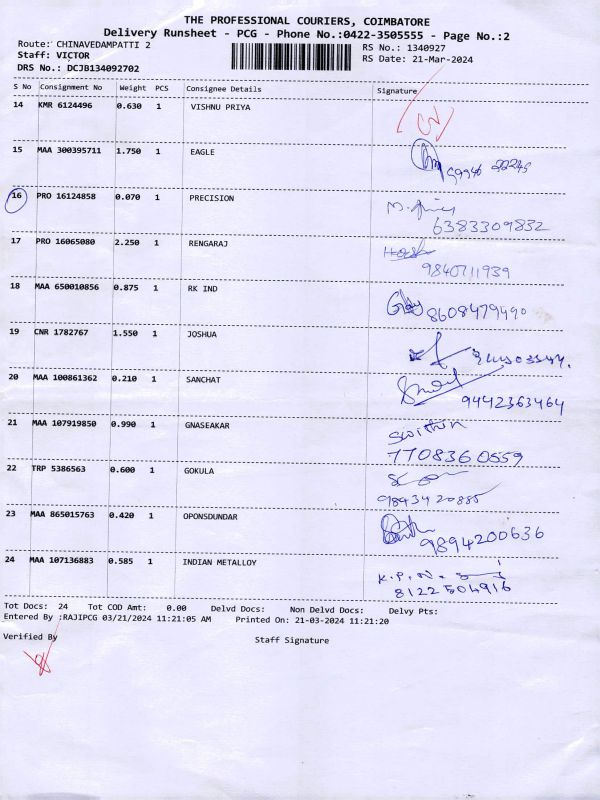 THE PROFESSIONAL COURIERS, COIMBATORE
Delivery Runsheet - PCG - Phone No.:0422-3505555 - Page No.:2
Route: CHINAVEDAMPATTI 2 RS No.: 1340927
Staff: VICTOR RS Date: 21-Mar-2024
DRS No.: DCJB134092702
S No Consignment No Weight PCS Consignee Details Signature
14 KMR 6124496 0.630 1 VISHNU PRIYA
15 MAA 300395711 1.750 1 EAGLE
16 PRO 16124858 0.070 1 PRECISION
6383309832
17 PRO 16065080 2.250 1 RENGARAJ
9840711939
18 MAA 650010856 0.875 1 RK IND
8608479490
19 CNR 1782767 1.550 1 JOSHUA
20 MAA 100861362 0.210 1 SANCHAT
9442363464
21 MAA 107919850 0.990 1 GNASEAKAR
7708360559
22 TRP 5386563 0.600 1 GOKULA
9843420885
23 MAA 865015763 0.420 1 OPONSDUNDAR
9894200636
24 MAA 107136883 0.585 1 INDIAN METALLOY
K.P.N.
8122504916
Tot Docs: 24 Tot COD Amt: 0.00 Delvd Docs: Non Delvd Docs: Delvy Pts:
Entered By :RAJIPCG 03/21/2024 11:21:05 AM Printed On: 21-03-2024 11:21:20
Verified By Staff Signature